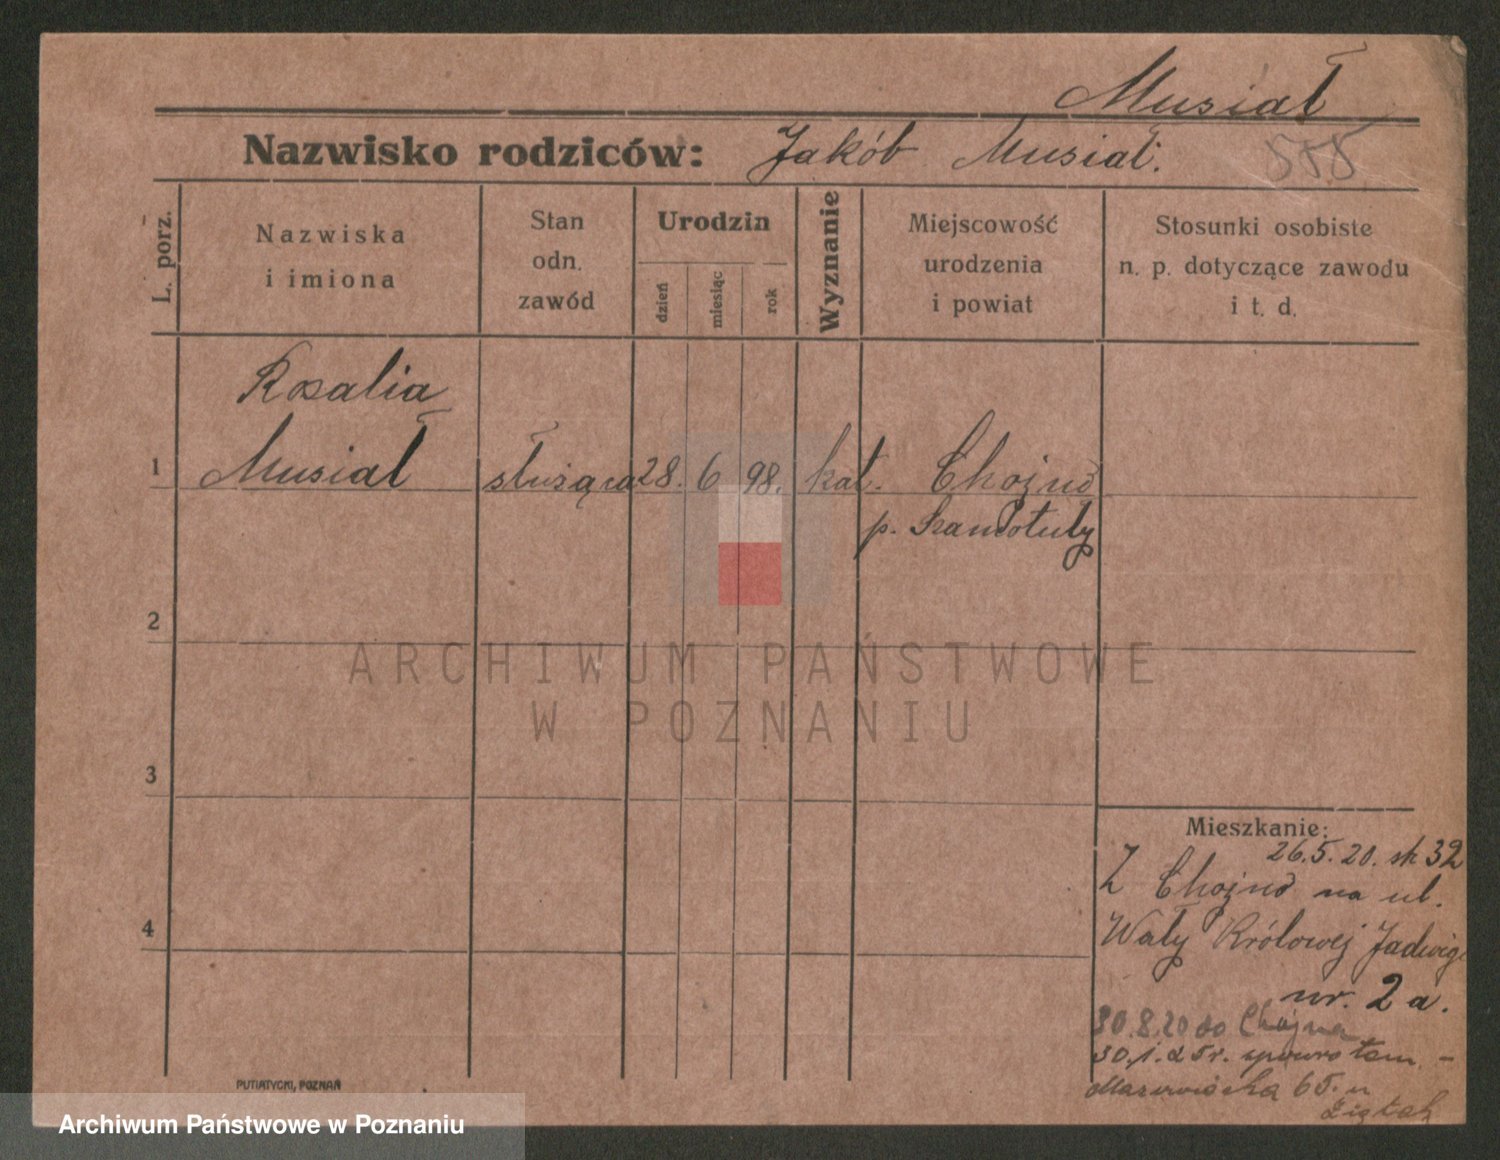 Musiał
Nazwisko rodziców: Jakób Musiał.
L. porz.
Nazwiska
i imiona
Stan
odn.
zawód
Urodzin
dzień
miesiąc
rok
Wyznanie
Miejscowość
urodzenia
i powiat
Stosunki osobiste
n. p. dotyczące zawodu
i t. d.
Rozalia
1 Musiał służąca 28. 6 98. kat. Chojno
p. Szamotuły
2
ARCHIWUM PAŃSTWOWE
W POZNANIU
3
Mieszkanie:
26.5.20. sk 32
Z Chojno na ul.
4
Wały Królowej Jadwigi
nr. 2a.
30.8.20 do Chojna
30.1.25r.
65.
PUTIATYCKI, POZNAŃ
Archiwum Państwowe w Poznaniu